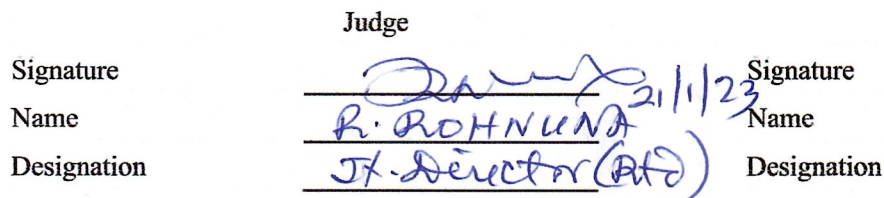 Judge
Signature 21/1/23 Signature
Name R. ROHNUNA Name
Designation Jt. Director (Rtd) Designation